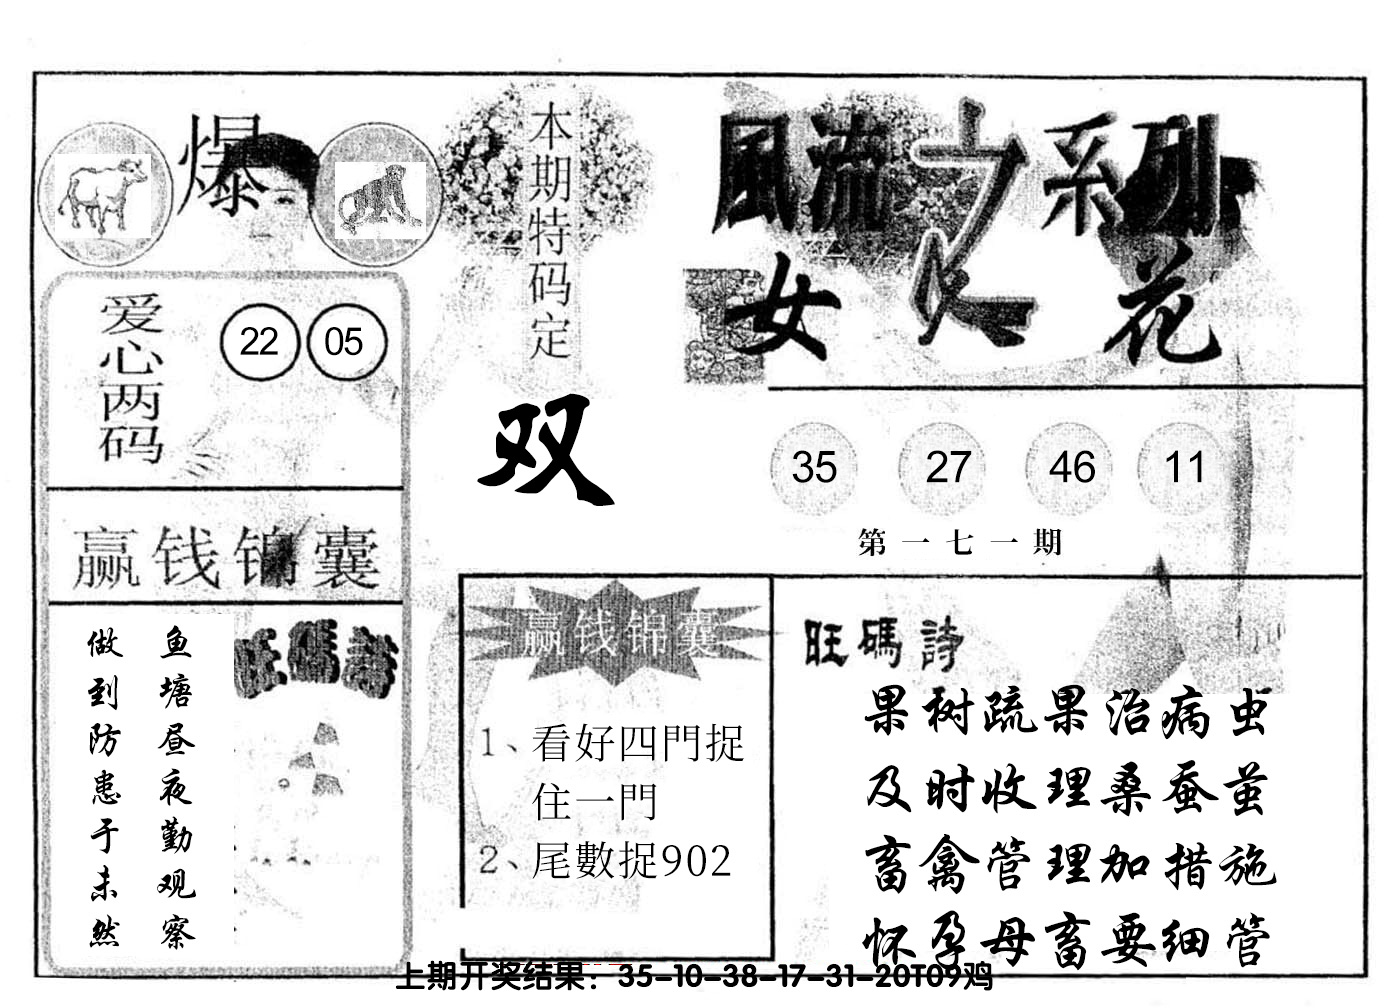 爆
本期特码定
双
風流之系列
女人花
爱心两码
22 05
35 27 46 11
第一七一期
赢钱锦囊
鱼塘昼夜勤观察
做到防患于未然
旺碼詩
赢钱锦囊
1、看好四門捉
住一門
2、尾數捉902
旺碼詩
果树疏果治病虫
及时收理桑蚕茧
畜禽管理加措施
怀孕母畜要细管
上期开奖结果：35-10-38-17-31-20T09鸡